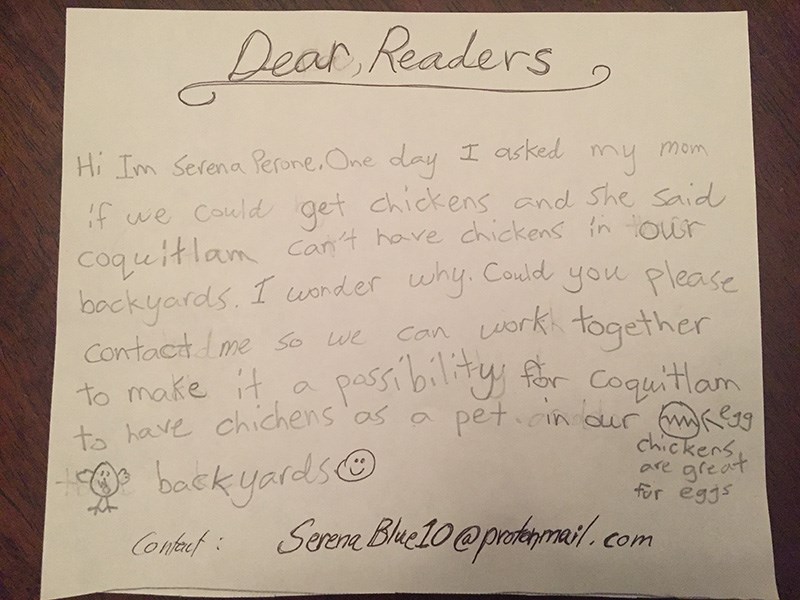 Dear, Readers
Hi Im Serena Perone. One day I asked my mom
if we could get chickens and she said
coquitlam can't have chickens in our
backyards. I wonder why. Could you please
contact me so we can work together
to make it a possibility for coquitlam
to have chichens as a pet. in our
egg
chickens
are great
for eggs
backyards
Contact: SerenaBlue10@protonmail.com